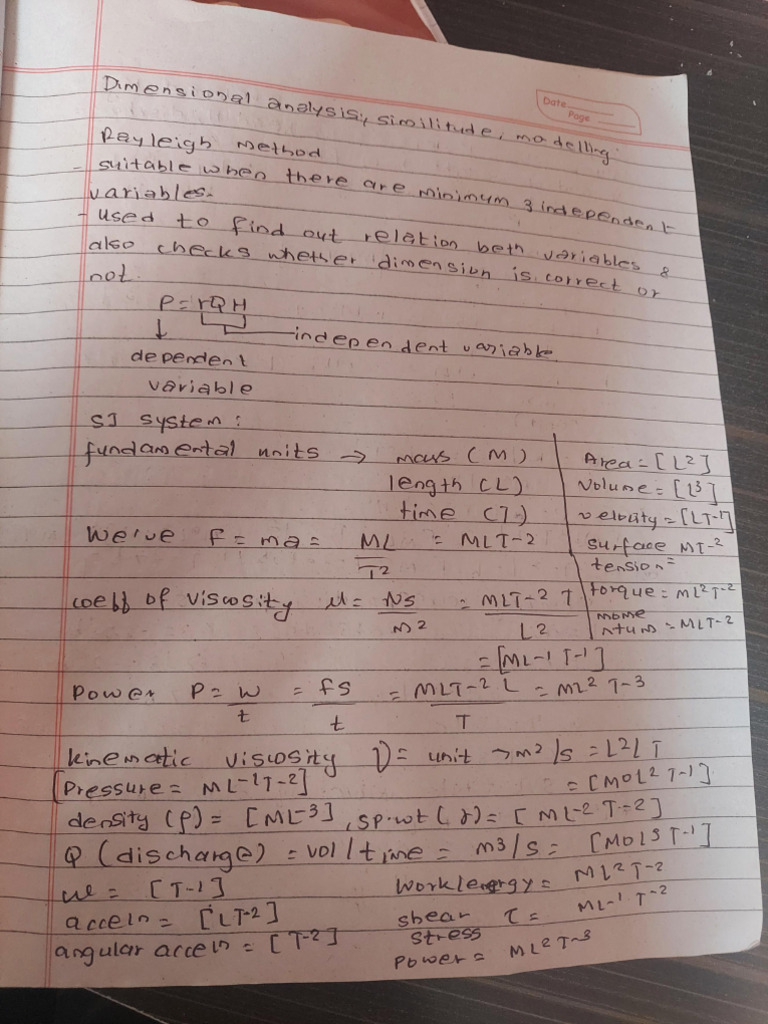 Date
Page
Dimensional analysis, similitude, modelling
Rayleigh method
- suitable when there are minimum 3 independent
variables.
- used to find out relation betn variables &
also checks whether dimension is correct or
not.
P = rQH
independent variable
dependent
variable
SI system :
fundamental units → mass (M)
length (L)
time (T)
We've F = ma = ML/T2 = MLT-2
coeff of viscosity μ = Ns/m2 = MLT-2 T/L2
= [ML-1 T-1]
Area = [L2]
Volume = [L3]
velocity = [LT-1]
surface MT-2
tension =
torque = ML2T-2
mome
ntum = MLT-2
Power P = w/t = fs/t = MLT-2 L/T = ML2 T-3
kinematic viscosity ν = unit → m2/s = L2/T
= [M0L2 T-1]
[Pressure = ML-1T-2]
density (ρ) = [ML-3], sp.wt (γ) = [ML-2 T-2]
Q (discharge) = vol/time = m3/s = [M0L3 T-1]
ω = [T-1]
acceln = [LT-2]
angular acceln = [T-2]
Work/energy = ML2 T-2
shear τ = ML-1 T-2
stress
Power = ML2T-3